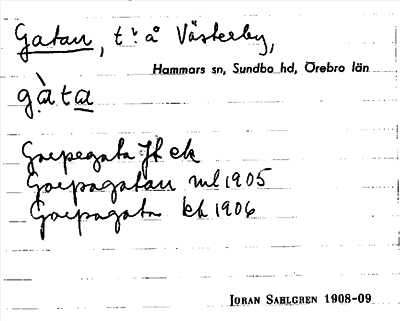 Gatan, t. å Västerby,
Hammars sn, Sundbo hd, Örebro län
gàta
Gaepegata Jb ek
Gaepagatan ml 1905
Gaepagata kh 1906
JORAN SAHLGREN 1908-09